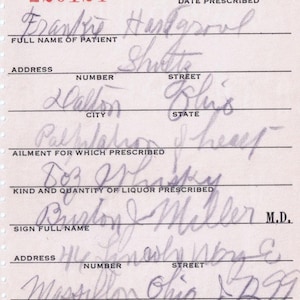 DATE PRESCRIBED
Hartgrool
FULL NAME OF PATIENT
Shultz
ADDRESS
NUMBER STREET
Dalton Ohio
CITY STATE
Palpitation of heart
AILMENT FOR WHICH PRESCRIBED
8oz Whisky
KIND AND QUANTITY OF LIQUOR PRESCRIBED
Burton J Miller M.D.
SIGN FULL NAME
ADDRESS Lincoln Way E
NUMBER STREET
Massillon Ohio